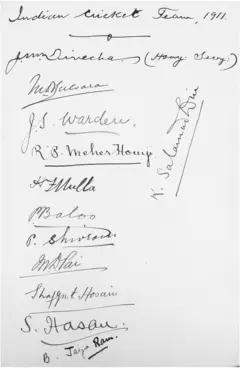 Indian Cricket Team, 1911.
J.M. Divecha (Hony: Secy:)
M.D. Bulsara
J. S. Warden.
R. P. Meher Homji
K. Salamud Din
H F Mulla
P. Baloo
P. Shivram
M D Pai
Shafqat Hosain
S. Hasan.
B. Jaya Ram.